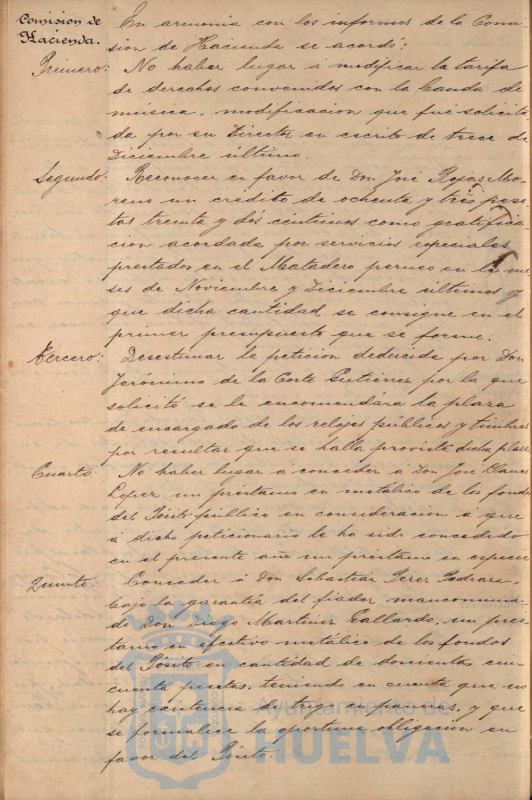 Comision de
Hacienda.
En armonía con los informes de la Comi-
sion de Hacienda se acordó:
Primero: No haber lugar á modificar la tarifa
de derechos convenidos con la banda de
música, modificacion que fué solicita
da por su Director en escrito de trece de
Diciembre último.
Segundo: Reconocer en favor de Don José Rojas Mo-
reno un crédito de ochenta y tres pese
tas treinta y dos céntimos como gratifica
cion acordada por servicios especiales
prestados en el Matadero público en los me
ses de Noviembre y Diciembre últimos y
que dicha cantidad se consigne en el
primer presupuesto que se forme.
Tercero: Desestimar la peticion deducida por Don
Jerónimo de la Corte Gutierrez por la que
solicitó se le encomendára la plaza
de encargado de los relojes públicos y timbres
por resultar que se halla provista dicha plaza
Cuarto: No haber lugar á conceder á Don José
Lopez un préstamo en metálico de los fondos
del Pósito público en consideracion á que
á dicho peticionario le ha sido concedido
en el presente año un préstamo en especie
Quinto: Conceder á Don Sebastián Perez Pedraza,
bajo la garantía del fiador mancomuna-
do Don Diego Martinez Gallardo, un prés
tamo en efectivo metálico de los fondos
del Pósito en cantidad de doscientas cin-
cuenta pesetas, teniendo en cuenta que no
hay existencia de trigo en paneras, y que
se formalice la oportuna obligacion en
favor del Pósito.
Ayuntamiento de
HUELVA